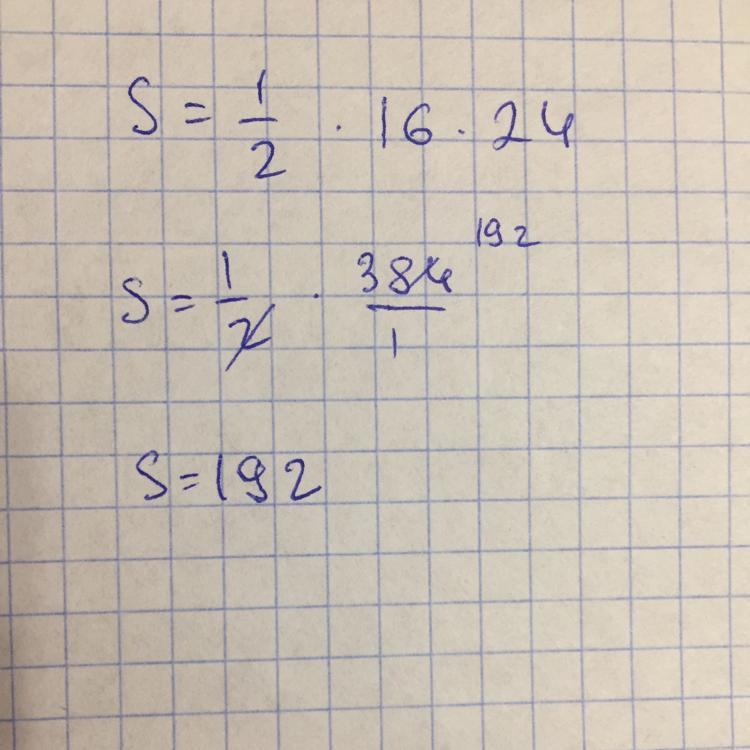 S = 1/2 · 16 · 24
S = 1/2 · 384/1 192
S = 192